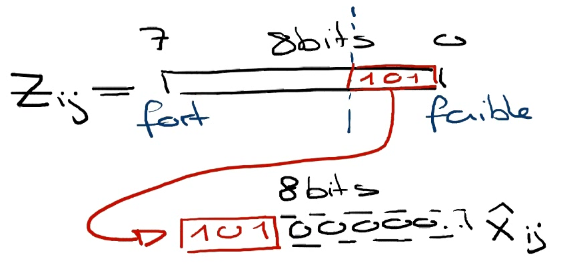 7 8bits 0
Zij = 101
fort faible
8bits
101 00000 X̂ij